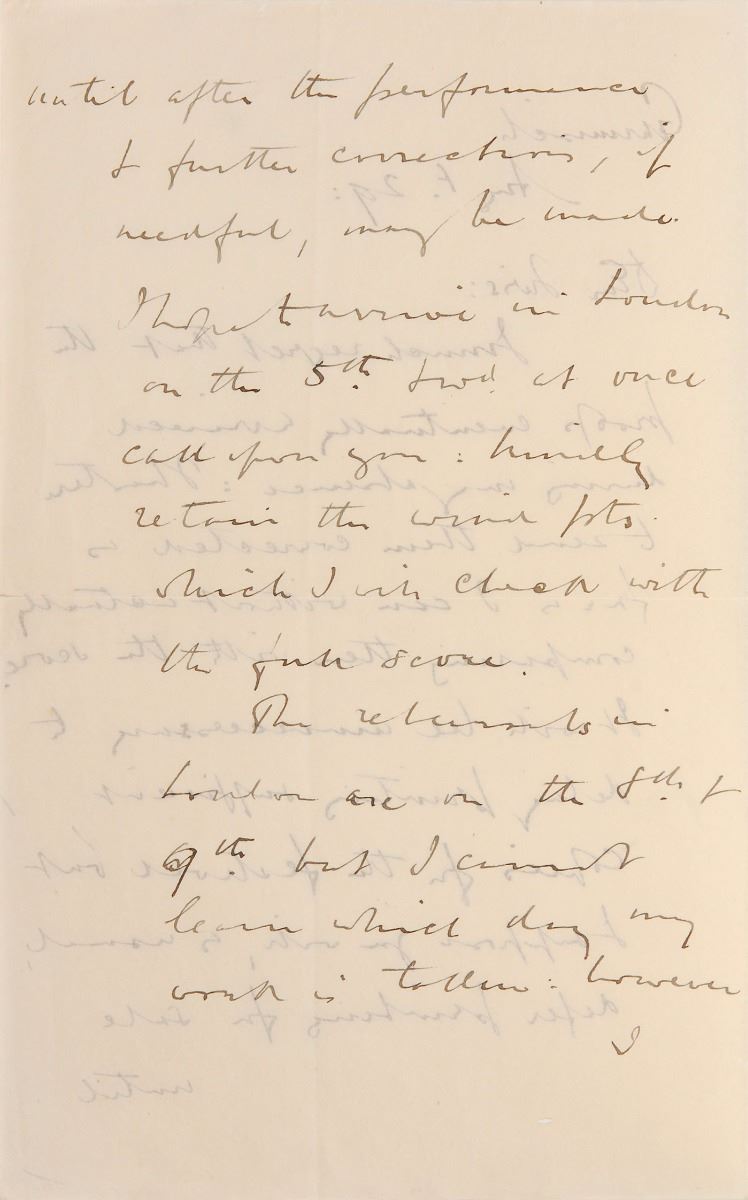 until after the performance
& further corrections, if
needful, may be made.
I hope to arrive in London
on the 5th & wd. at once
call upon you: kindly
retain the wind pts.
which I will check with
the full score.
The rehearsals in
London are on the 8th &
9th but I cannot
learn which day my
work is taken: however
I